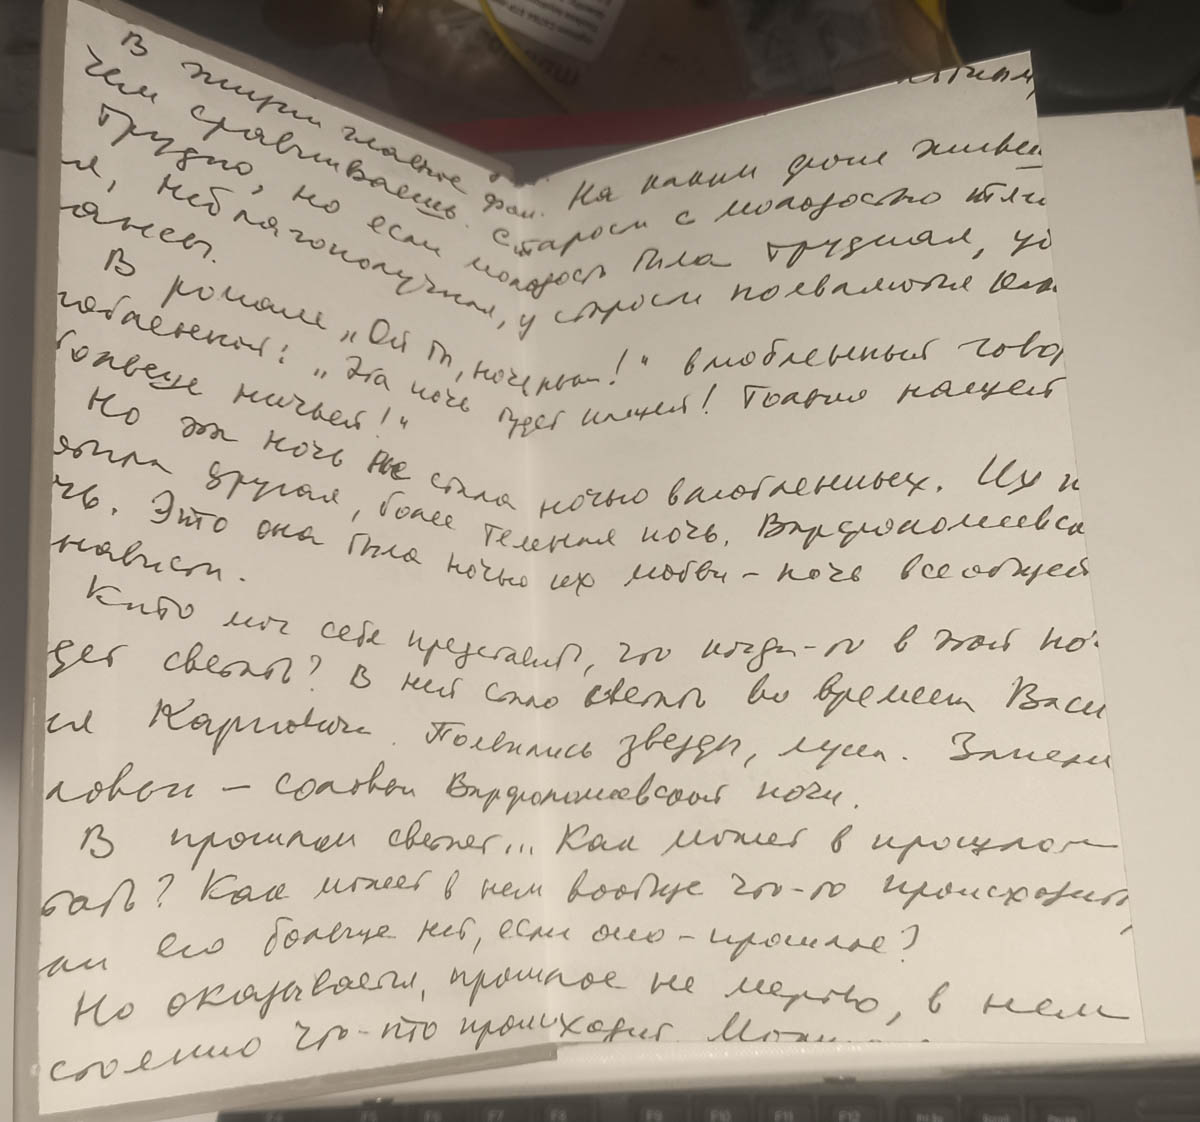 В жизни главное фон. На каком фоне живеш
чем сравниваешь. Старости с молодостью тяг
трудно, но если молодость была трудная, уд
ая, неблагополучная, у старости появляются
ансы.
В романе „Ой ты, ноченька!" влюбленный говор
любленной: „Эта ночь будет нашей! Только нашей
больше ничьей!"
Но эта ночь не стала ночью влюбленных. Их н
другая, более темная ночь. Варфоломеевска
чь. Это она была ночью их любви – ночь всеобщей
нависти.
Кто мог себе представить, что когда-то в этой но
дет светать? В ней стало светать во времена Васи
ия Карповича. Появились звезды, луна. Запели
ловьи – соловьи Варфоломеевской ночи.
В прошлом светает... Как может в прошлом
тать? Как может в нем вообще что-то происходить,
ли его больше нет, если оно – прошлое?
Но оказывается, прошлое не мертво, в нем
стоянно что-то происходит.